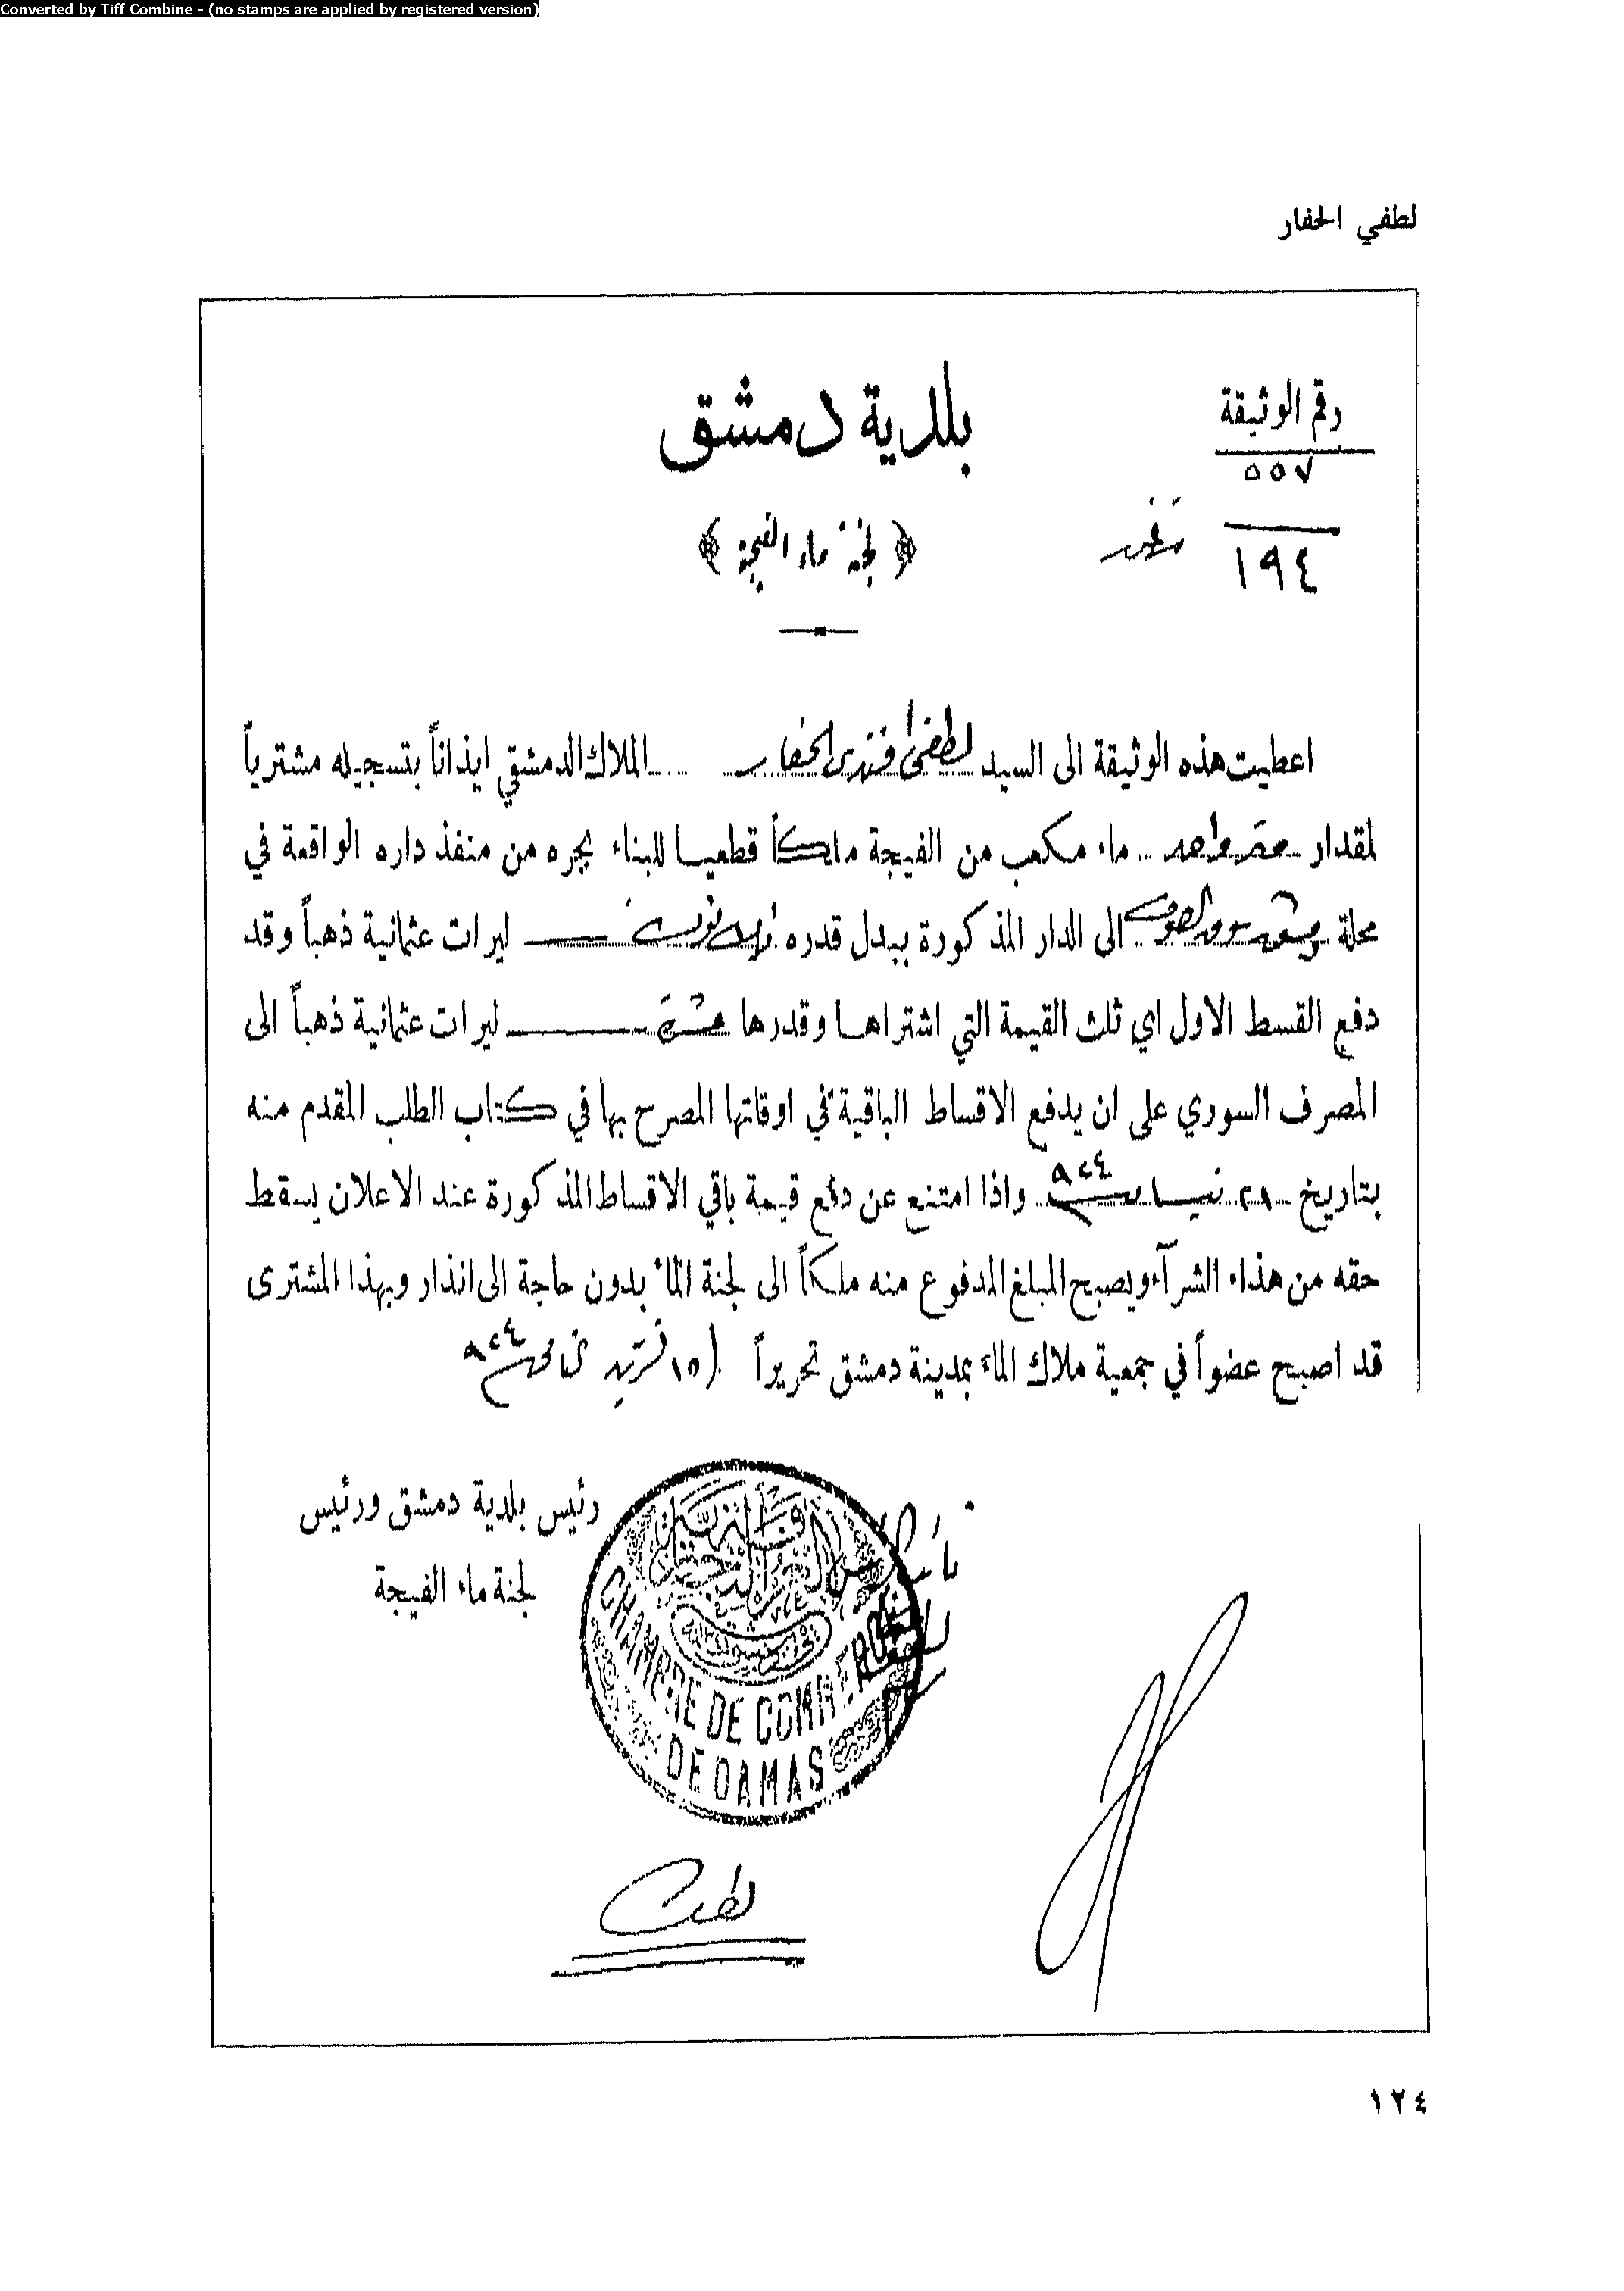 Converted by Tiff Combine - (no stamps are applied by registered version)
لطفي الحفار
رقم الوثيقة
٥٥٧
١٩٤
بلدية دمشق
﴿ لجنة ماء الفيجة ﴾
اعطيت هذه الوثيقة الى السيد لطفي افندي الحفار الملاك الدمشقي ايذاناً بتسجيله مشترياً
لمقدار متر واحد ماء مكعب من الفيجة ملكاً قطعيا للبناء يجره من منفذ داره الواقعة في
محلة سوق الى الدار المذكورة ببدل قدره ثلاثون ليرات عثمانية ذهباً وقد
دفع القسط الاول اي ثلث القيمة التي اشتراها وقدرها عشرة ليرات عثمانية ذهباً الى
المصرف السوري على ان يدفع الاقساط الباقية في اوقاتها المصرح بها في كتاب الطلب المقدم منه
بتاريخ ٢٨ نيسان سنة ٩٢٤ واذا امتنع عن دفع قيمة باقي الاقساط المذكورة عند الاعلان يسقط
حقه من هذاء الشرآء ويصبح المبلغ المدفوع منه ملكاً الى لجنة الماء بدون حاجة الى انذار وبهذا المشترى
قد اصبح عضواً في جمعية ملاك الماء بمدينة دمشق تحريراً في ١٥ تشرين ثاني سنة ٩٢٤
رئيس بلدية دمشق ورئيس
لجنة ماء الفيجة
CHAMBRE DE COMMERCE
DE DAMAS
١٢٤